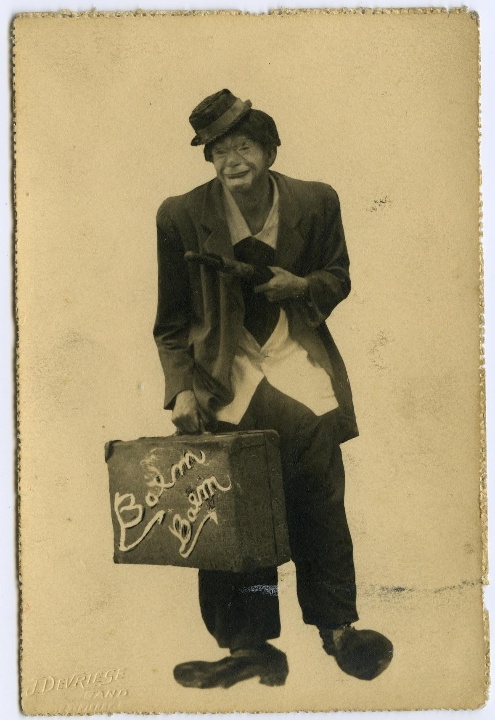 Balm
Balm
J. DEVRIESE
GAND